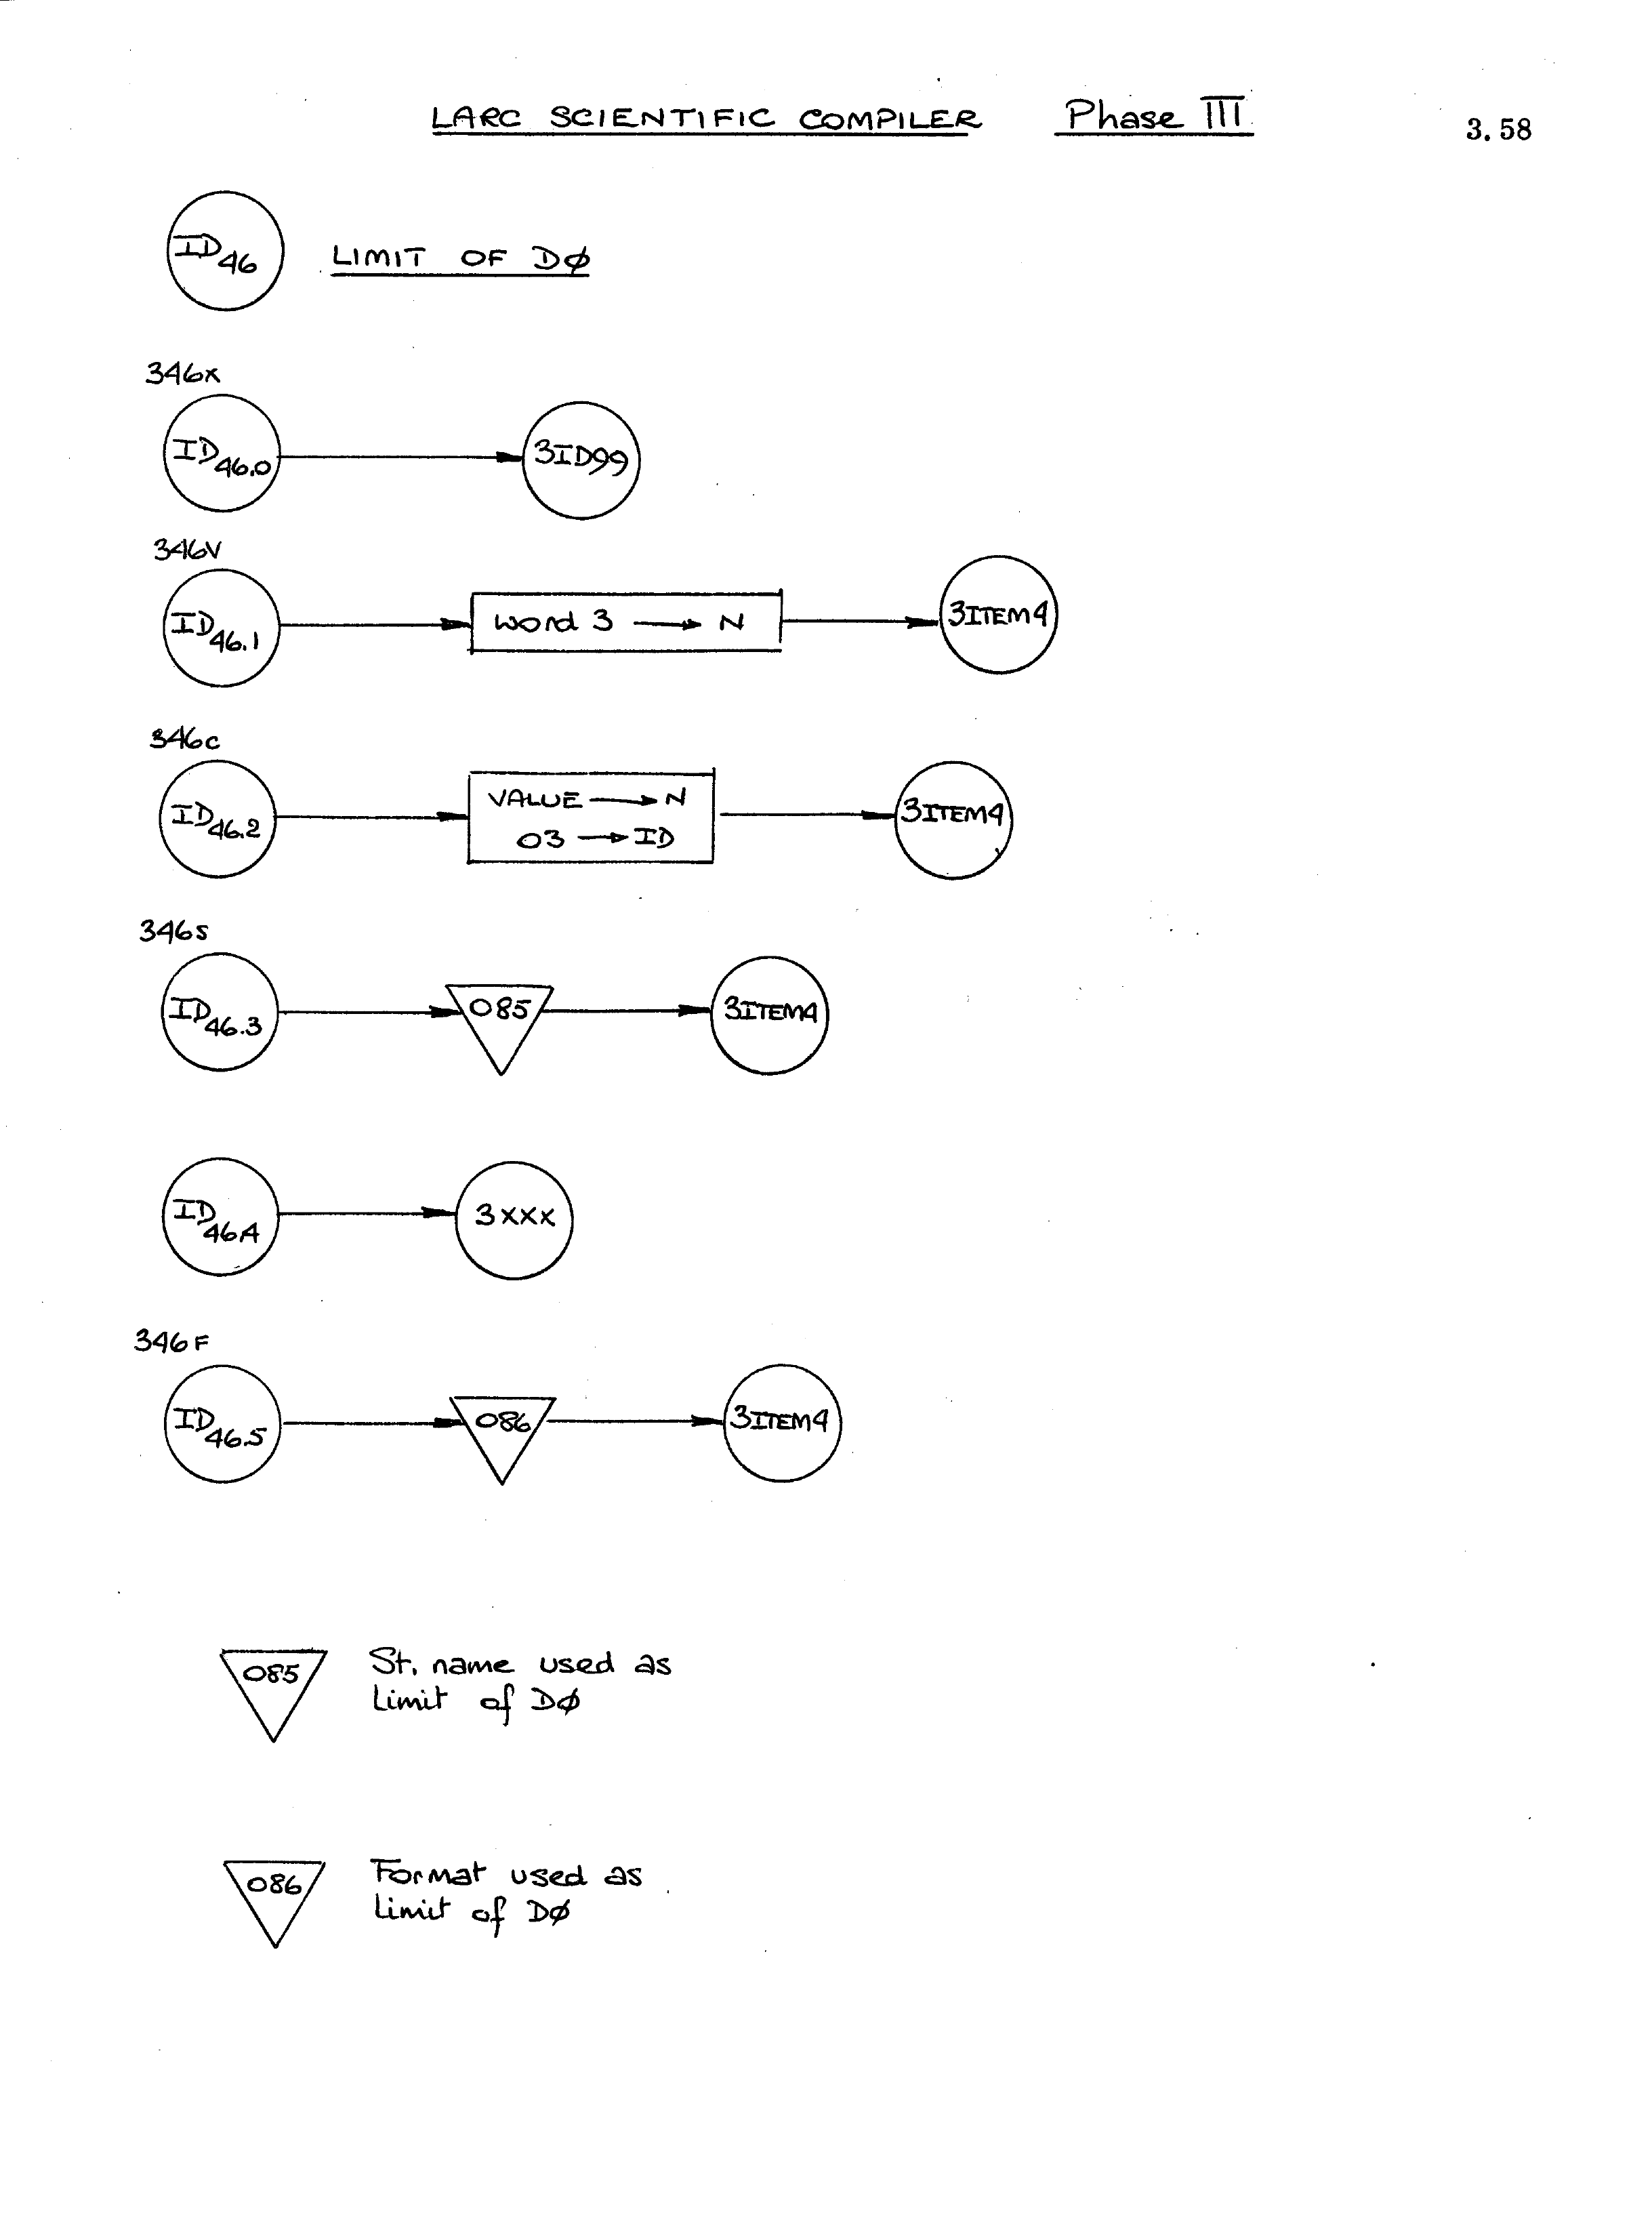 LARC SCIENTIFIC COMPILER Phase III 3.58
ID46 LIMIT OF DØ
346x
ID46.0 3ID99
346V
ID46.1 Word 3 → N 3ITEM4
346c
ID46.2 VALUE → N 3ITEM4
03 → ID
346s
ID46.3 085 3ITEM4
ID46A 3xxx
346F
ID46.5 086 3ITEM4
085 St. name used as
Limit of DØ
086 Format used as
Limit of DØ